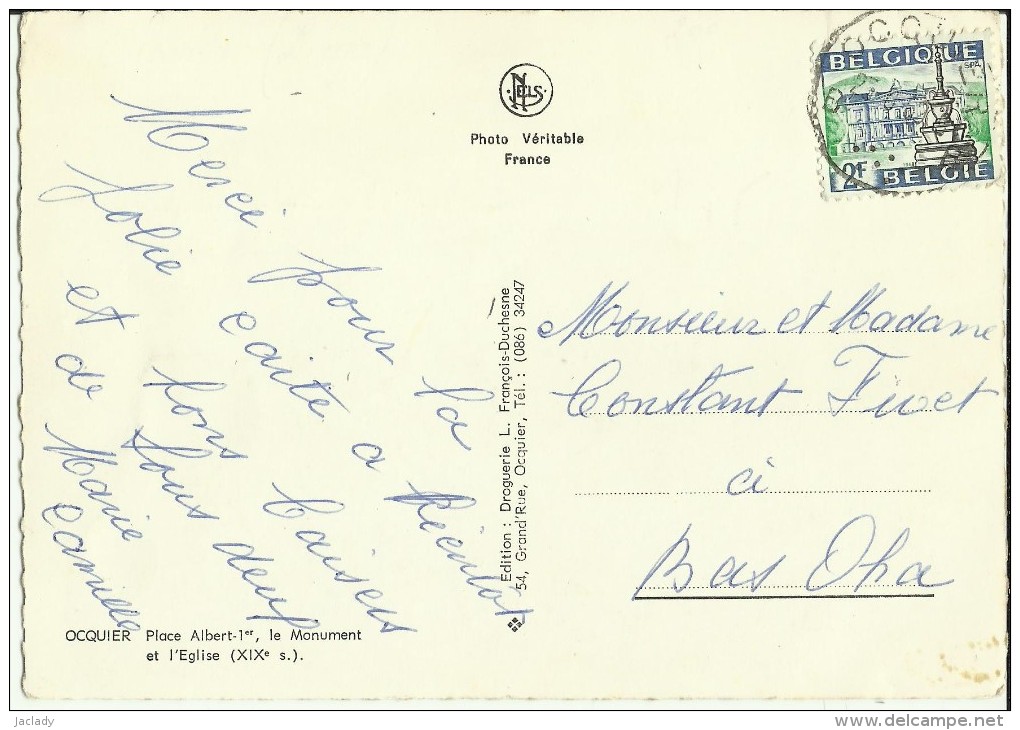 NELS
Photo Véritable
France
BELGIQUE
SPA
2F BELGIE
Merci pour la
Jolie carte a Bientot
et bons baisers
de tous deux
Marie
Camille
Edition : Droguerie L. François-Duchesne
54, Grand'Rue, Ocquier, Tél. : (086) 34247
Monsieur et Madame
Constant Fivet
à
Bas Oha
OCQUIER Place Albert-1er, le Monument
et l'Eglise (XIXe s.).
jaclady
www.delcampe.net